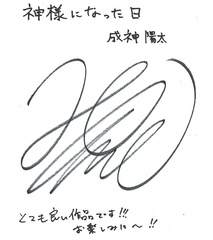 神様になった日
成神 陽太
とても良い作品です!!!
お楽しみに〜!!